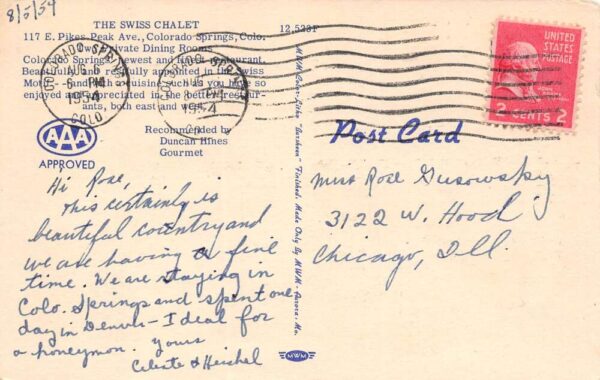 8/5/54
THE SWISS CHALET
117 E. Pikes Peak Ave., Colorado Springs, Colo.
Two Private Dining Rooms
Colorado Springs' newest and finest restaurant.
Beautifully and restfully appointed in the Swiss
Motif and with a cuisine such as you have so
enjoyed and appreciated in the better restaur-
ants, both east and west.
Recommended by
Duncan Hines
Gourmet
AAA
APPROVED
12,523F
COLORADO SPRINGS
AUG 5
6 PM
1954
COLO.
COLORADO SPRINGS
1954
UNITED
STATES
POSTAGE
2 CENTS 2
Post Card
MWM Color-Litho "Larcheen" Finished. Made Only By MWM. Aurora, Mo.
Hi Rose,
This certainly is
beautiful country and
we are having a fine
time. We are staying in
Colo. Springs and spent one
day in Denver - Ideal for
a honeymon. Yours
Celeste & Herschel
Miss Rose Gusowsky
3122 W. Hood
Chicago, Ill.
MWM